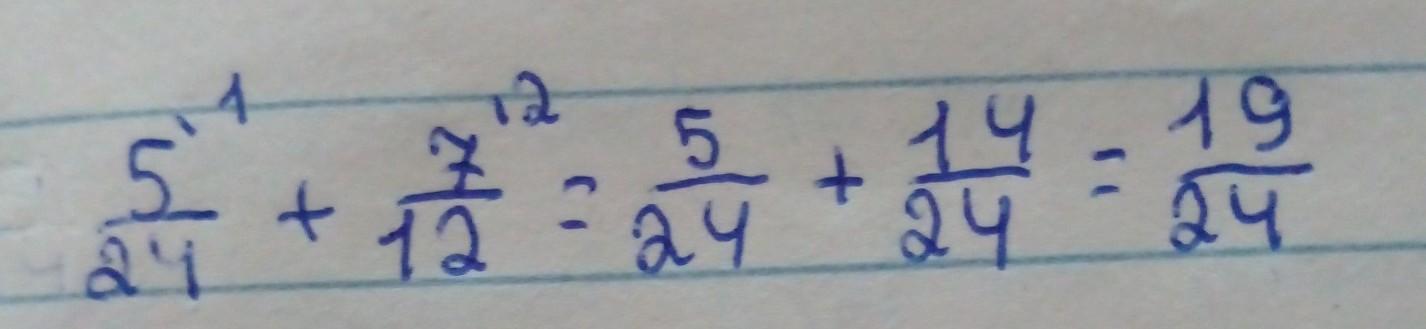 5/24 '1 + 7/12 '2 = 5/24 + 14/24 = 19/24